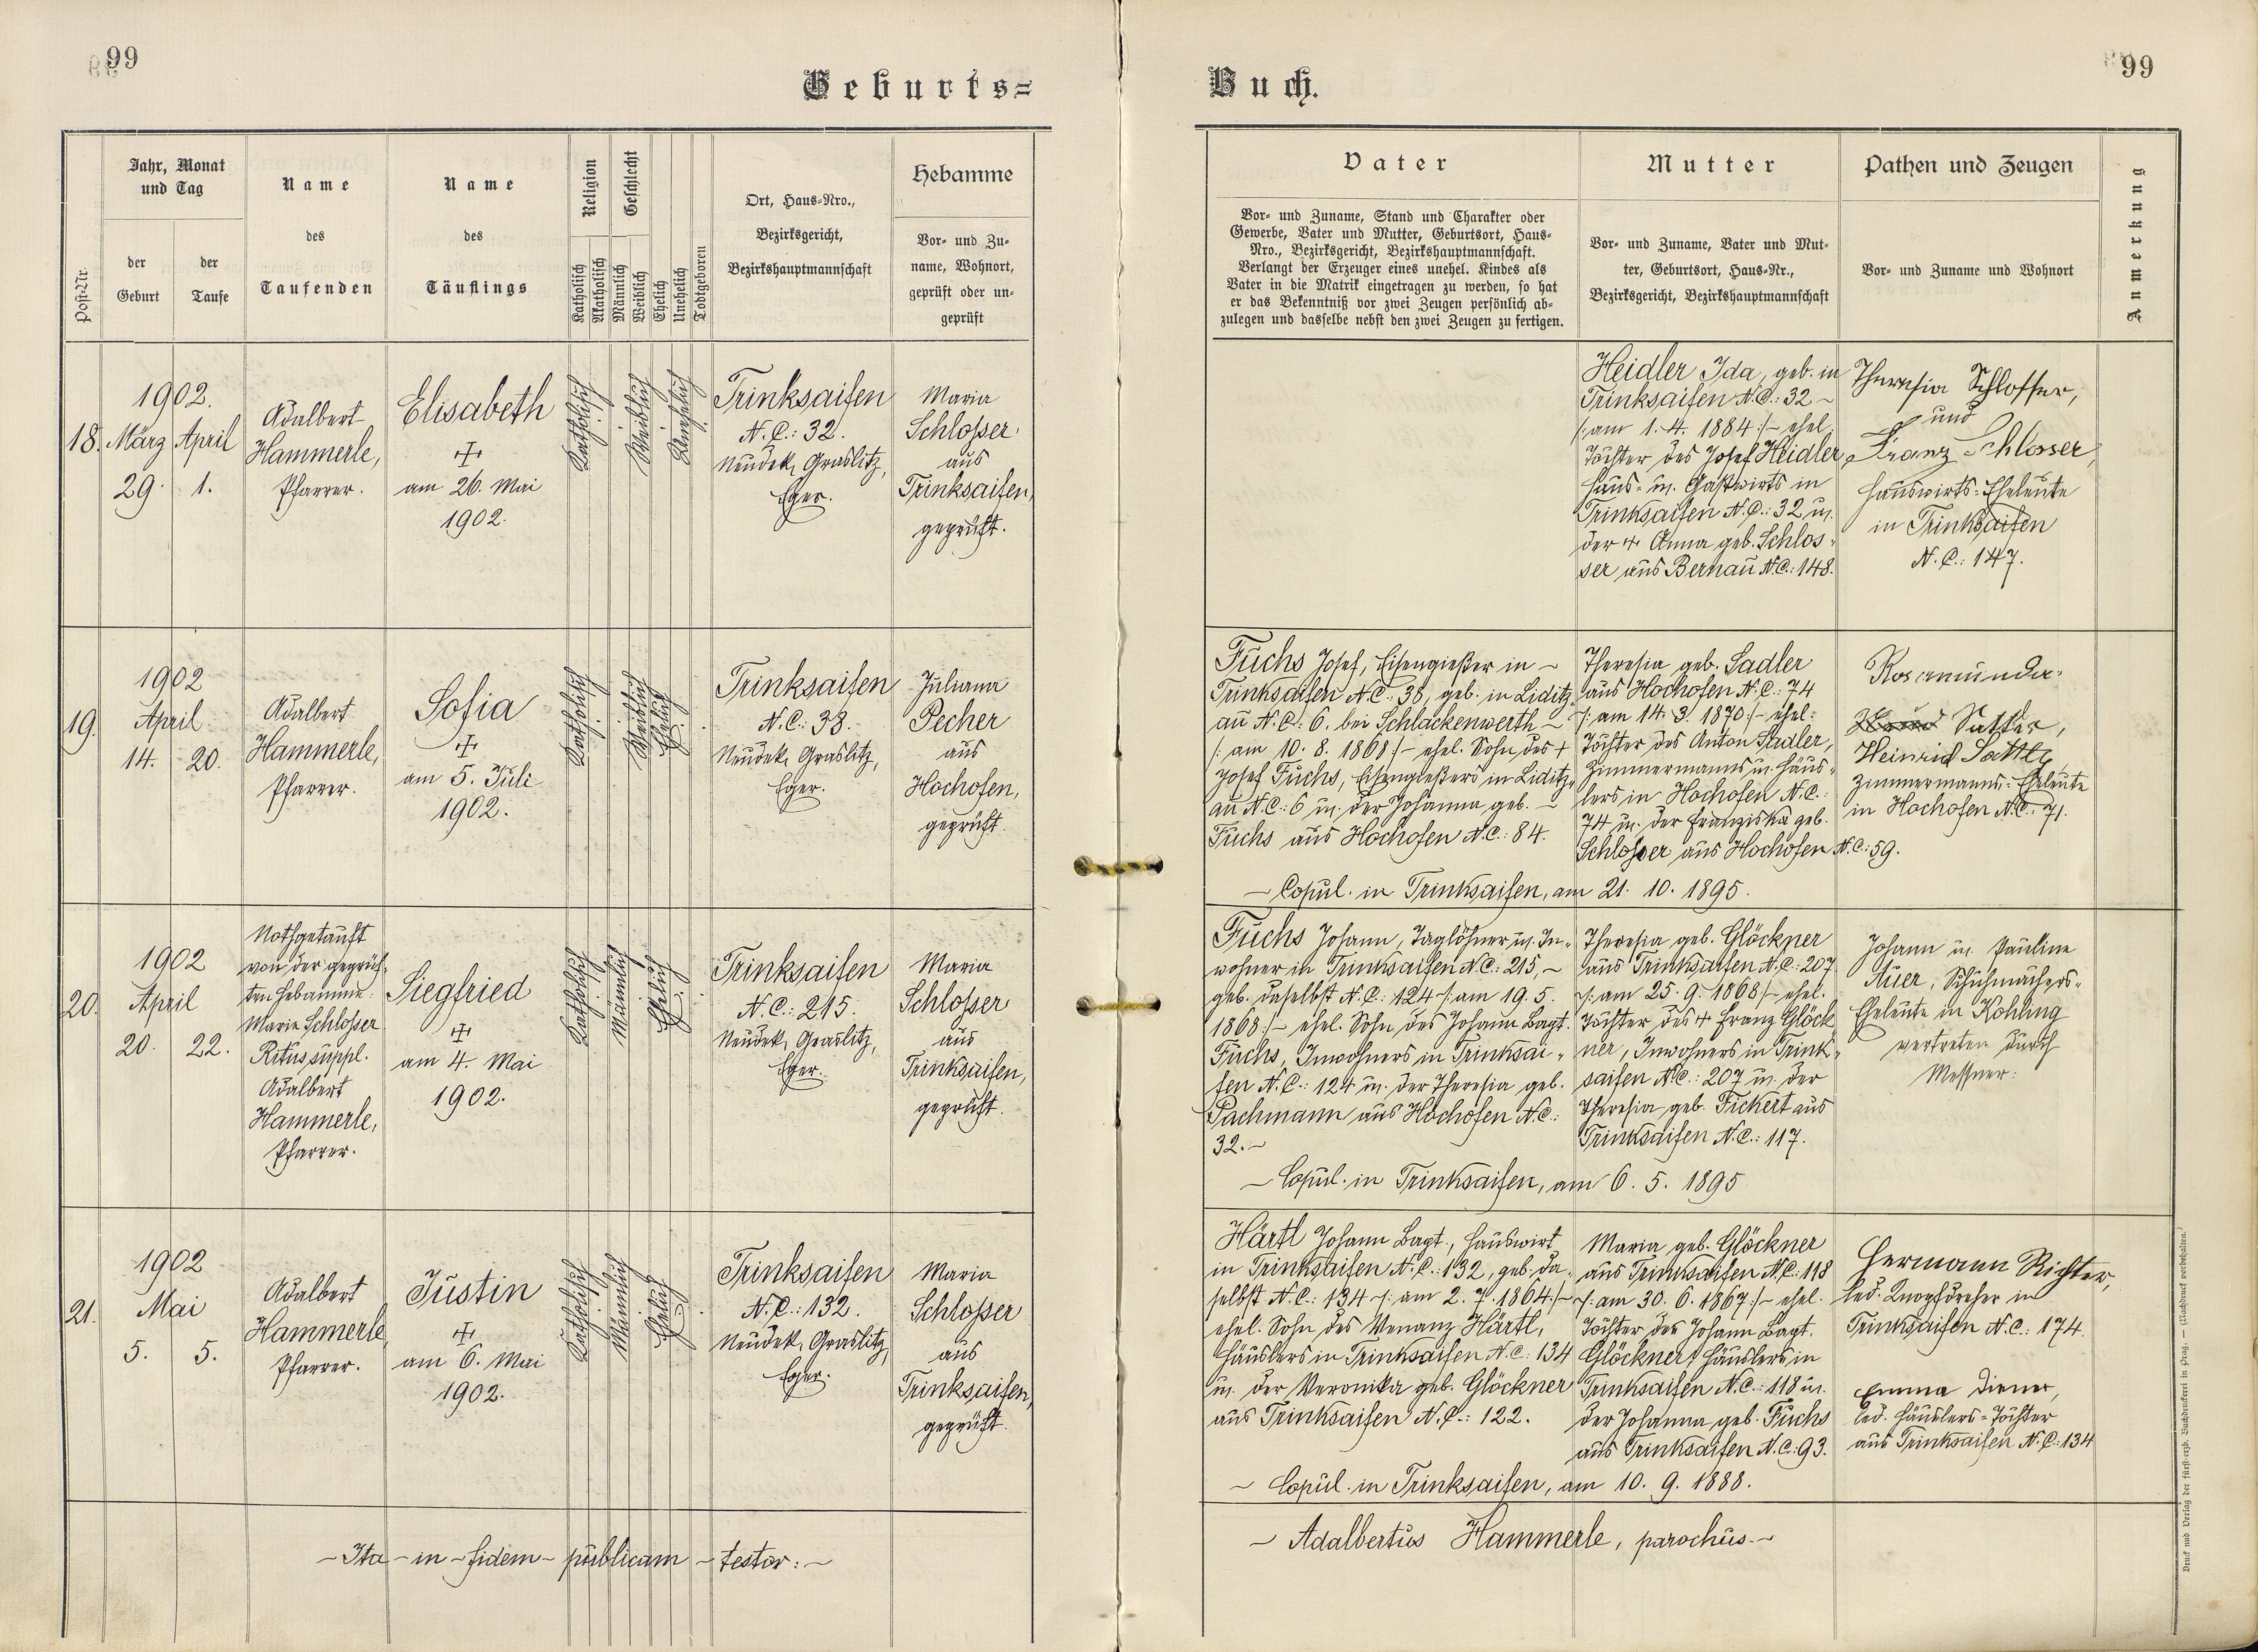 99
Geburts=
Post-Nr.
Jahr, Monat
und Tag
der
Geburt
der
Taufe
Name
des
Taufenden
Name
des
Täuflings
Religion
Katholisch
Akatholisch
Geschlecht
Männlich
Weiblich
Ehelich
Unehelich
Todtgeboren
Ort, Haus-Nro.,
Bezirksgericht,
Bezirkshauptmannschaft
Hebamme
Vor- und Zu-
name, Wohnort,
geprüft oder un-
geprüft
18.
1902.
März April
29. 1.
Adalbert
Hammerle,
Pfarrer.
Elisabeth
+
am 26. Mai
1902.
Katholisch
Weiblich
Unehelich
Trinksaifen
N.C.: 32.
Neudek, Graslitz,
Eger.
Maria
Schlosser
aus
Trinksaifen,
geprüft.
19.
1902
April
14. 20.
Adalbert
Hammerle,
Pfarrer.
Sofia
+
am 5. Juli
1902.
Katholisch
Weiblich
Ehelich
Trinksaifen
N.C.: 38.
Neudek, Graslitz,
Eger.
Juliana
Pecher
aus
Hochofen,
geprüft.
20.
1902
April
20. 22.
Nothgetauft
von der geprüf-
ten Hebamme:
Marie Schlosser
Ritus suppl.
Adalbert
Hammerle,
Pfarrer.
Siegfried
+
am 4. Mai
1902.
Katholisch
Männlich
Ehelich
Trinksaifen
N.C.: 215.
Neudek, Graslitz,
Eger.
Maria
Schlosser
aus
Trinksaifen,
geprüft.
21.
1902
Mai
5. 5.
Adalbert
Hammerle,
Pfarrer.
Justin
+
am 6. Mai
1902.
Katholisch
Männlich
Ehelich
Trinksaifen
N.C.: 132.
Neudek, Graslitz,
Eger.
Maria
Schlosser
aus
Trinksaifen,
geprüft.
- Ita - in - fidem - publicam - testor: -
Buch.
99
Vater
Vor- und Zuname, Stand und Charakter oder
Gewerbe, Vater und Mutter, Geburtsort, Haus-
Nro., Bezirksgericht, Bezirkshauptmannschaft.
Verlangt der Erzeuger eines unehel. Kindes als
Vater in die Matrik eingetragen zu werden, so hat
er das Bekenntniß vor zwei Zeugen persönlich ab-
zulegen und dasselbe nebst den zwei Zeugen zu fertigen.
Mutter
Vor- und Zuname, Vater und Mut-
ter, Geburtsort, Haus-Nr.,
Bezirksgericht, Bezirkshauptmannschaft
Pathen und Zeugen
Vor- und Zuname und Wohnort
Anmerkung
Heidler Ida, geb. in
Trinksaifen N.C.: 32 -
/: am 1. 4. 1884 :/- ehel.
Tochter des Josef Heidler,
Haus- u. Gastwirts in
Trinksaifen N.C.: 32 u.
der + Anna geb. Schlos-
ser aus Bernau N.C.: 148.
Theresia Schlosser,
und
Franz Schlosser,
Hauswirts-Eheleute
in Trinksaifen
N.C.: 147.
Fuchs Josef, Eisengießer in -
Trinksaifen N.C.: 38, geb. in Liditz-
au N.C.: 6. bei Schlackenwerth -
/: am 10. 8. 1868 :/- ehel. Sohn des +
Josef Fuchs, Eisengießers in Liditz-
au N.C.: 6 u. der Johanna geb. -
Fuchs aus Hochofen N.C.: 84.
Theresia geb. Sadler
aus Hochofen N.C.: 74
/: am 14. 3. 1870 :/- ehel.
Tochter des Anton Sadler,
Zimmermanns u. Häus-
lers in Hochofen N.C.:
74 u. der Franziska geb.
Schlosser aus Hochofen N.C.: 59.
Rosamunda
Sattler,
Heinrich Sattler
Zimmermanns-Eheleute
in Hochofen N.C.: 71.
- Copul. in Trinksaifen, am 21. 10. 1895.
Fuchs Johann, Taglöhner u. In-
wohner in Trinksaifen N.C.: 215, -
geb. daselbst N.C.: 124 /: am 19. 5.
1868 :/- ehel. Sohn des Johann Bapt.
Fuchs, Inwohners in Trinksai-
fen N.C.: 124 u. der Theresia geb.
Pachmann aus Hochofen N.C.:
32. -
Theresia geb. Glöckner
aus Trinksaifen N.C.: 207
/: am 25. 9. 1868 :/- ehel.
Tochter des + Franz Glöck-
ner, Inwohners in Trink-
saifen N.C.: 207 u. der
Theresia geb. Fickert aus
Trinksaifen N.C.: 117.
Johann u. Pauline
Auer, Schuhmachers-
Eheleute in Kohling
vertreten durch
Messner:
- Copul. in Trinksaifen, am 6. 5. 1895
Härtl Johann Bapt., Hauswirt
in Trinksaifen N.C.: 132, geb. da-
selbst N.C.: 134 /: am 2. 7. 1864 :/-
ehel. Sohn des Venanz Härtl,
Häuslers in Trinksaifen N.C.: 134
u. der Veronika geb. Glöckner
aus Trinksaifen N.C.: 122.
Maria geb. Glöckner
aus Trinksaifen N.C.: 118
/: am 30. 6. 1867 :/- ehel.
Tochter des Johann Bapt.
Glöckner, Häuslers in
Trinksaifen N.C.: 118 u.
der Johanna geb. Fuchs
aus Trinksaifen N.C.: 93.
Hermann Richter,
led. Knopfdreher in
Trinksaifen N.C.: 174.
Emma Diener,
led. Häuslers-Tochter
aus Trinksaifen N.C.: 134
- Copul. in Trinksaifen, am 10. 9. 1888.
- Adalbertus Hammerle, parochus. -
Druck und Verlag der fürst-erzb. Buchdruckerei in Prag. — (Nachdruck vorbehalten.)